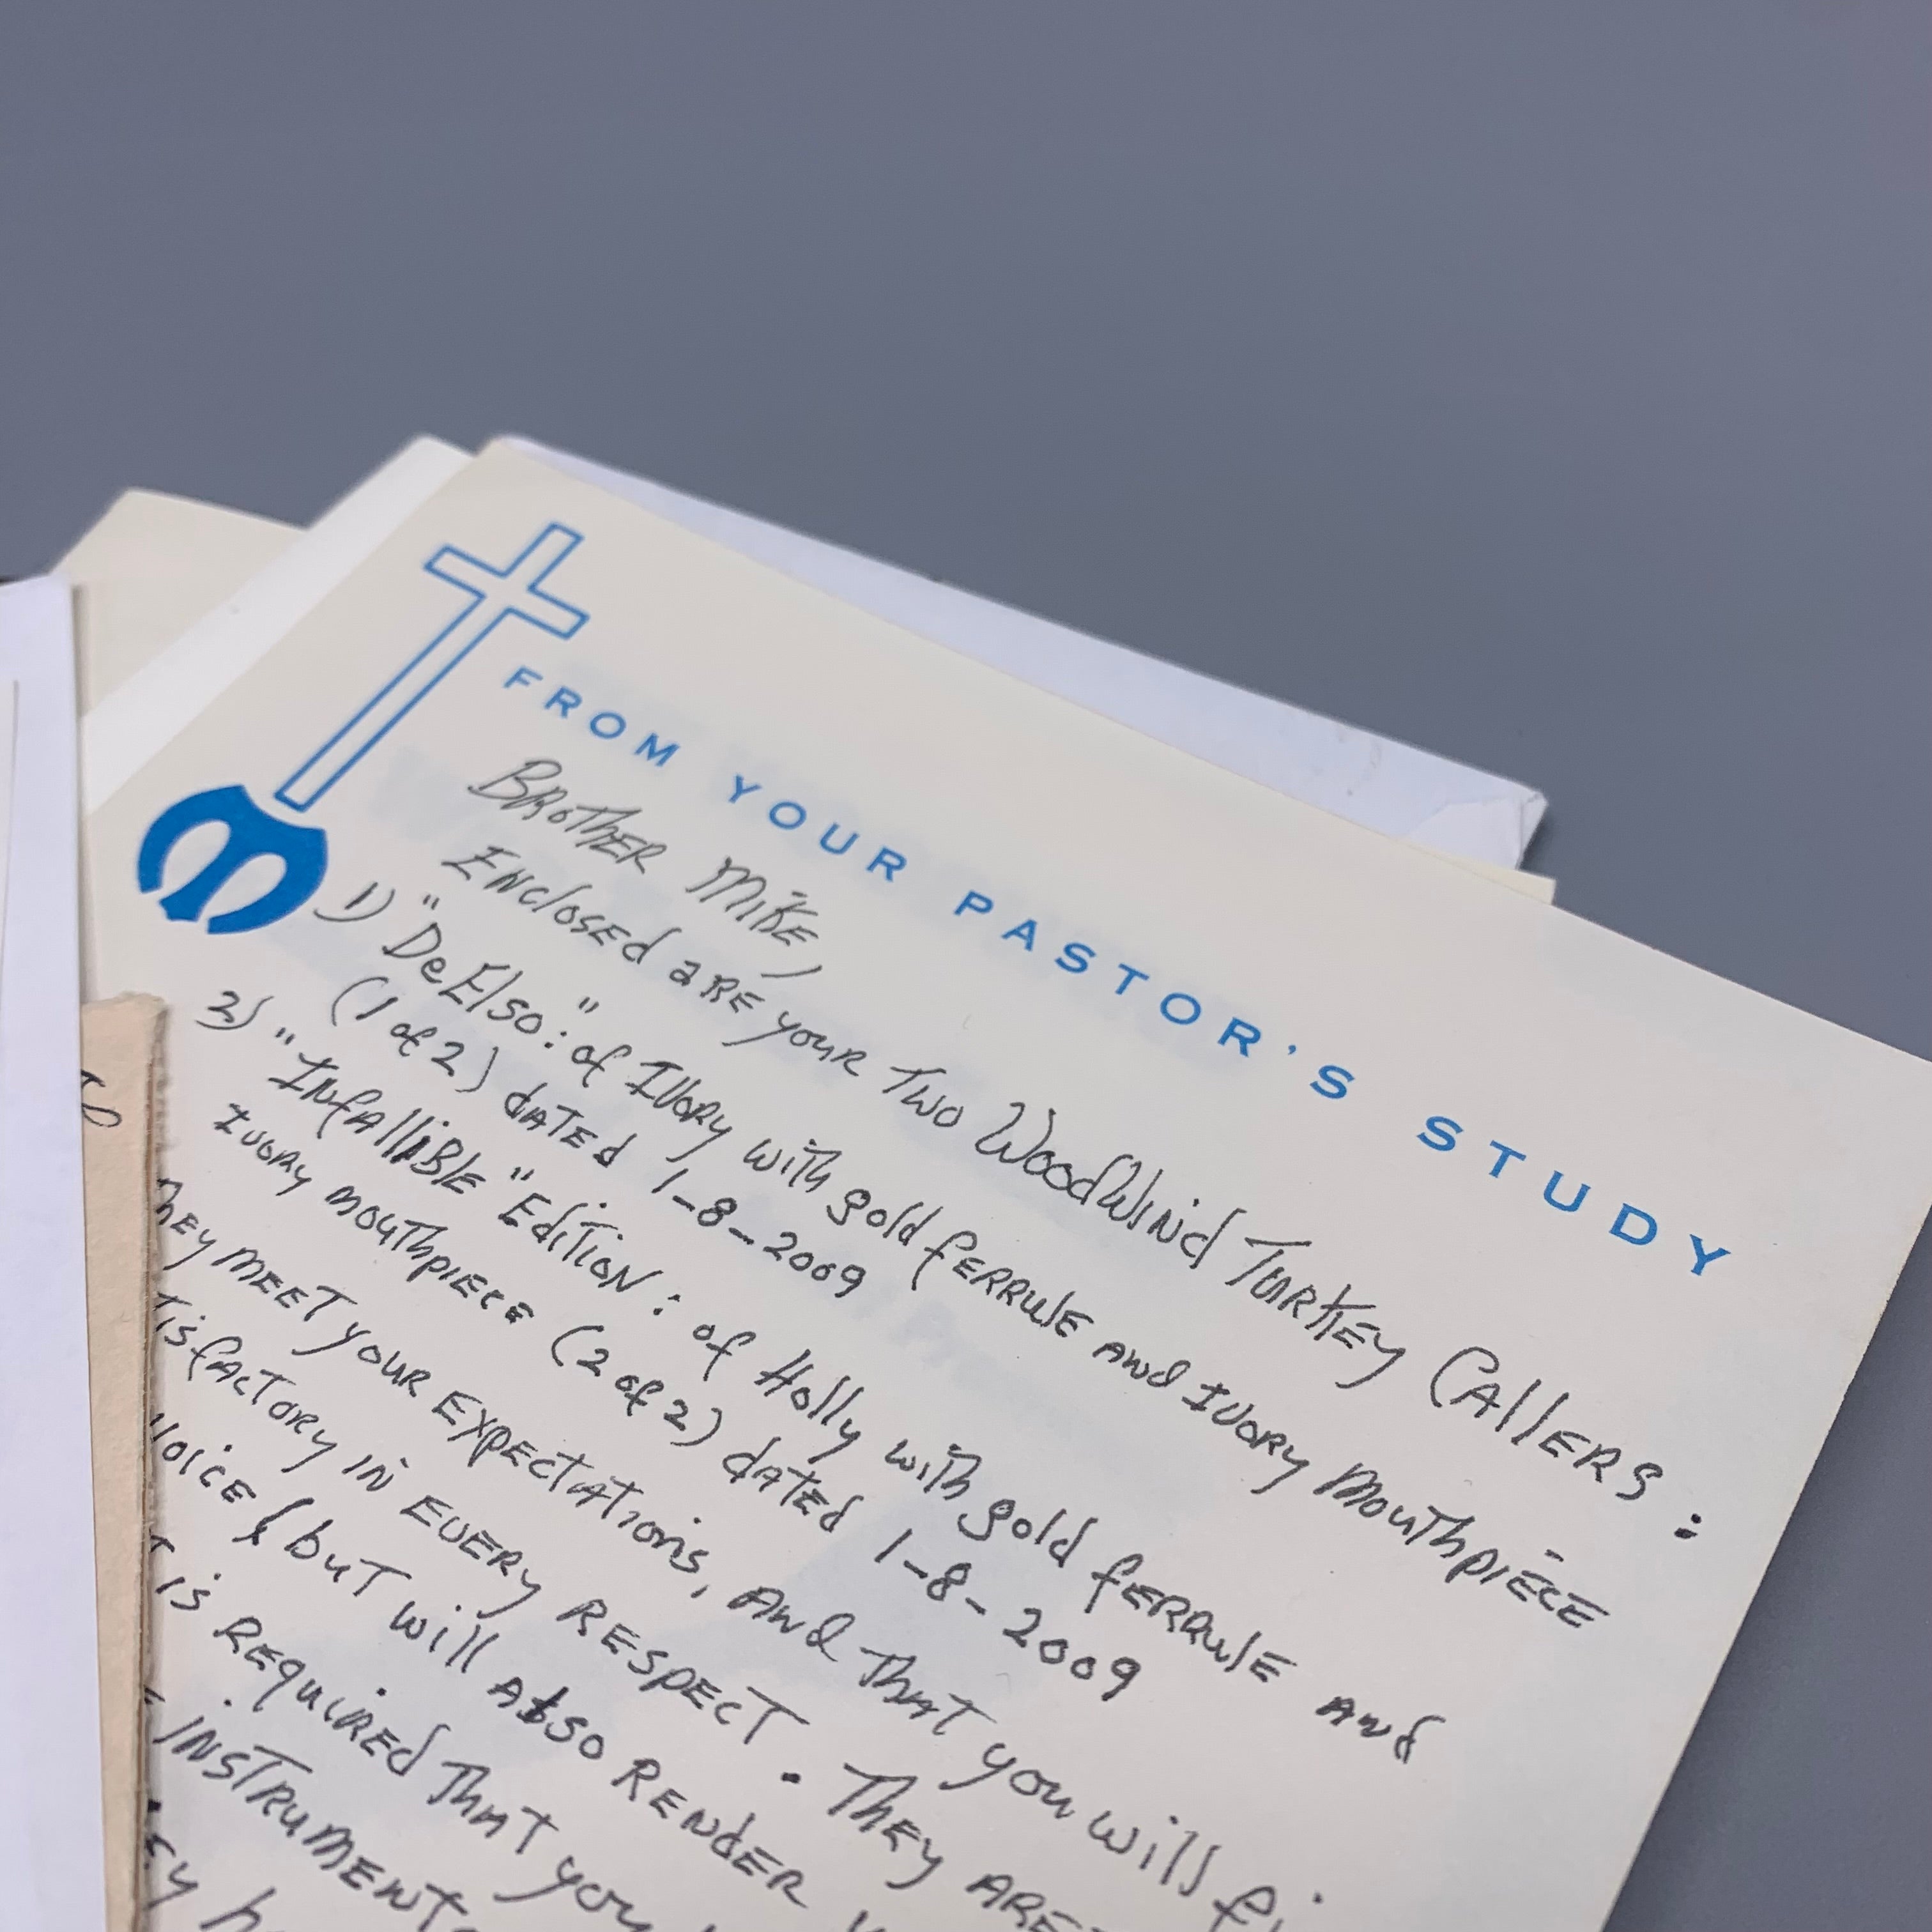 FROM YOUR PASTOR'S STUDY
Brother Mike,
Enclosed are your two WoodWind Turkey Callers:
1) "De Elso:" of Ivory with gold ferrule and Ivory mouthpiece
(1 of 2) dated 1-8-2009
2) "Infallible" Edition: of Holly with gold ferrule and
Ivory mouthpiece (2 of 2) dated 1-8-2009
hey meet your expectations, and that you will fi
tisfactory in every respect. They are
voice & but will also render
is required that you
instruments
ey h